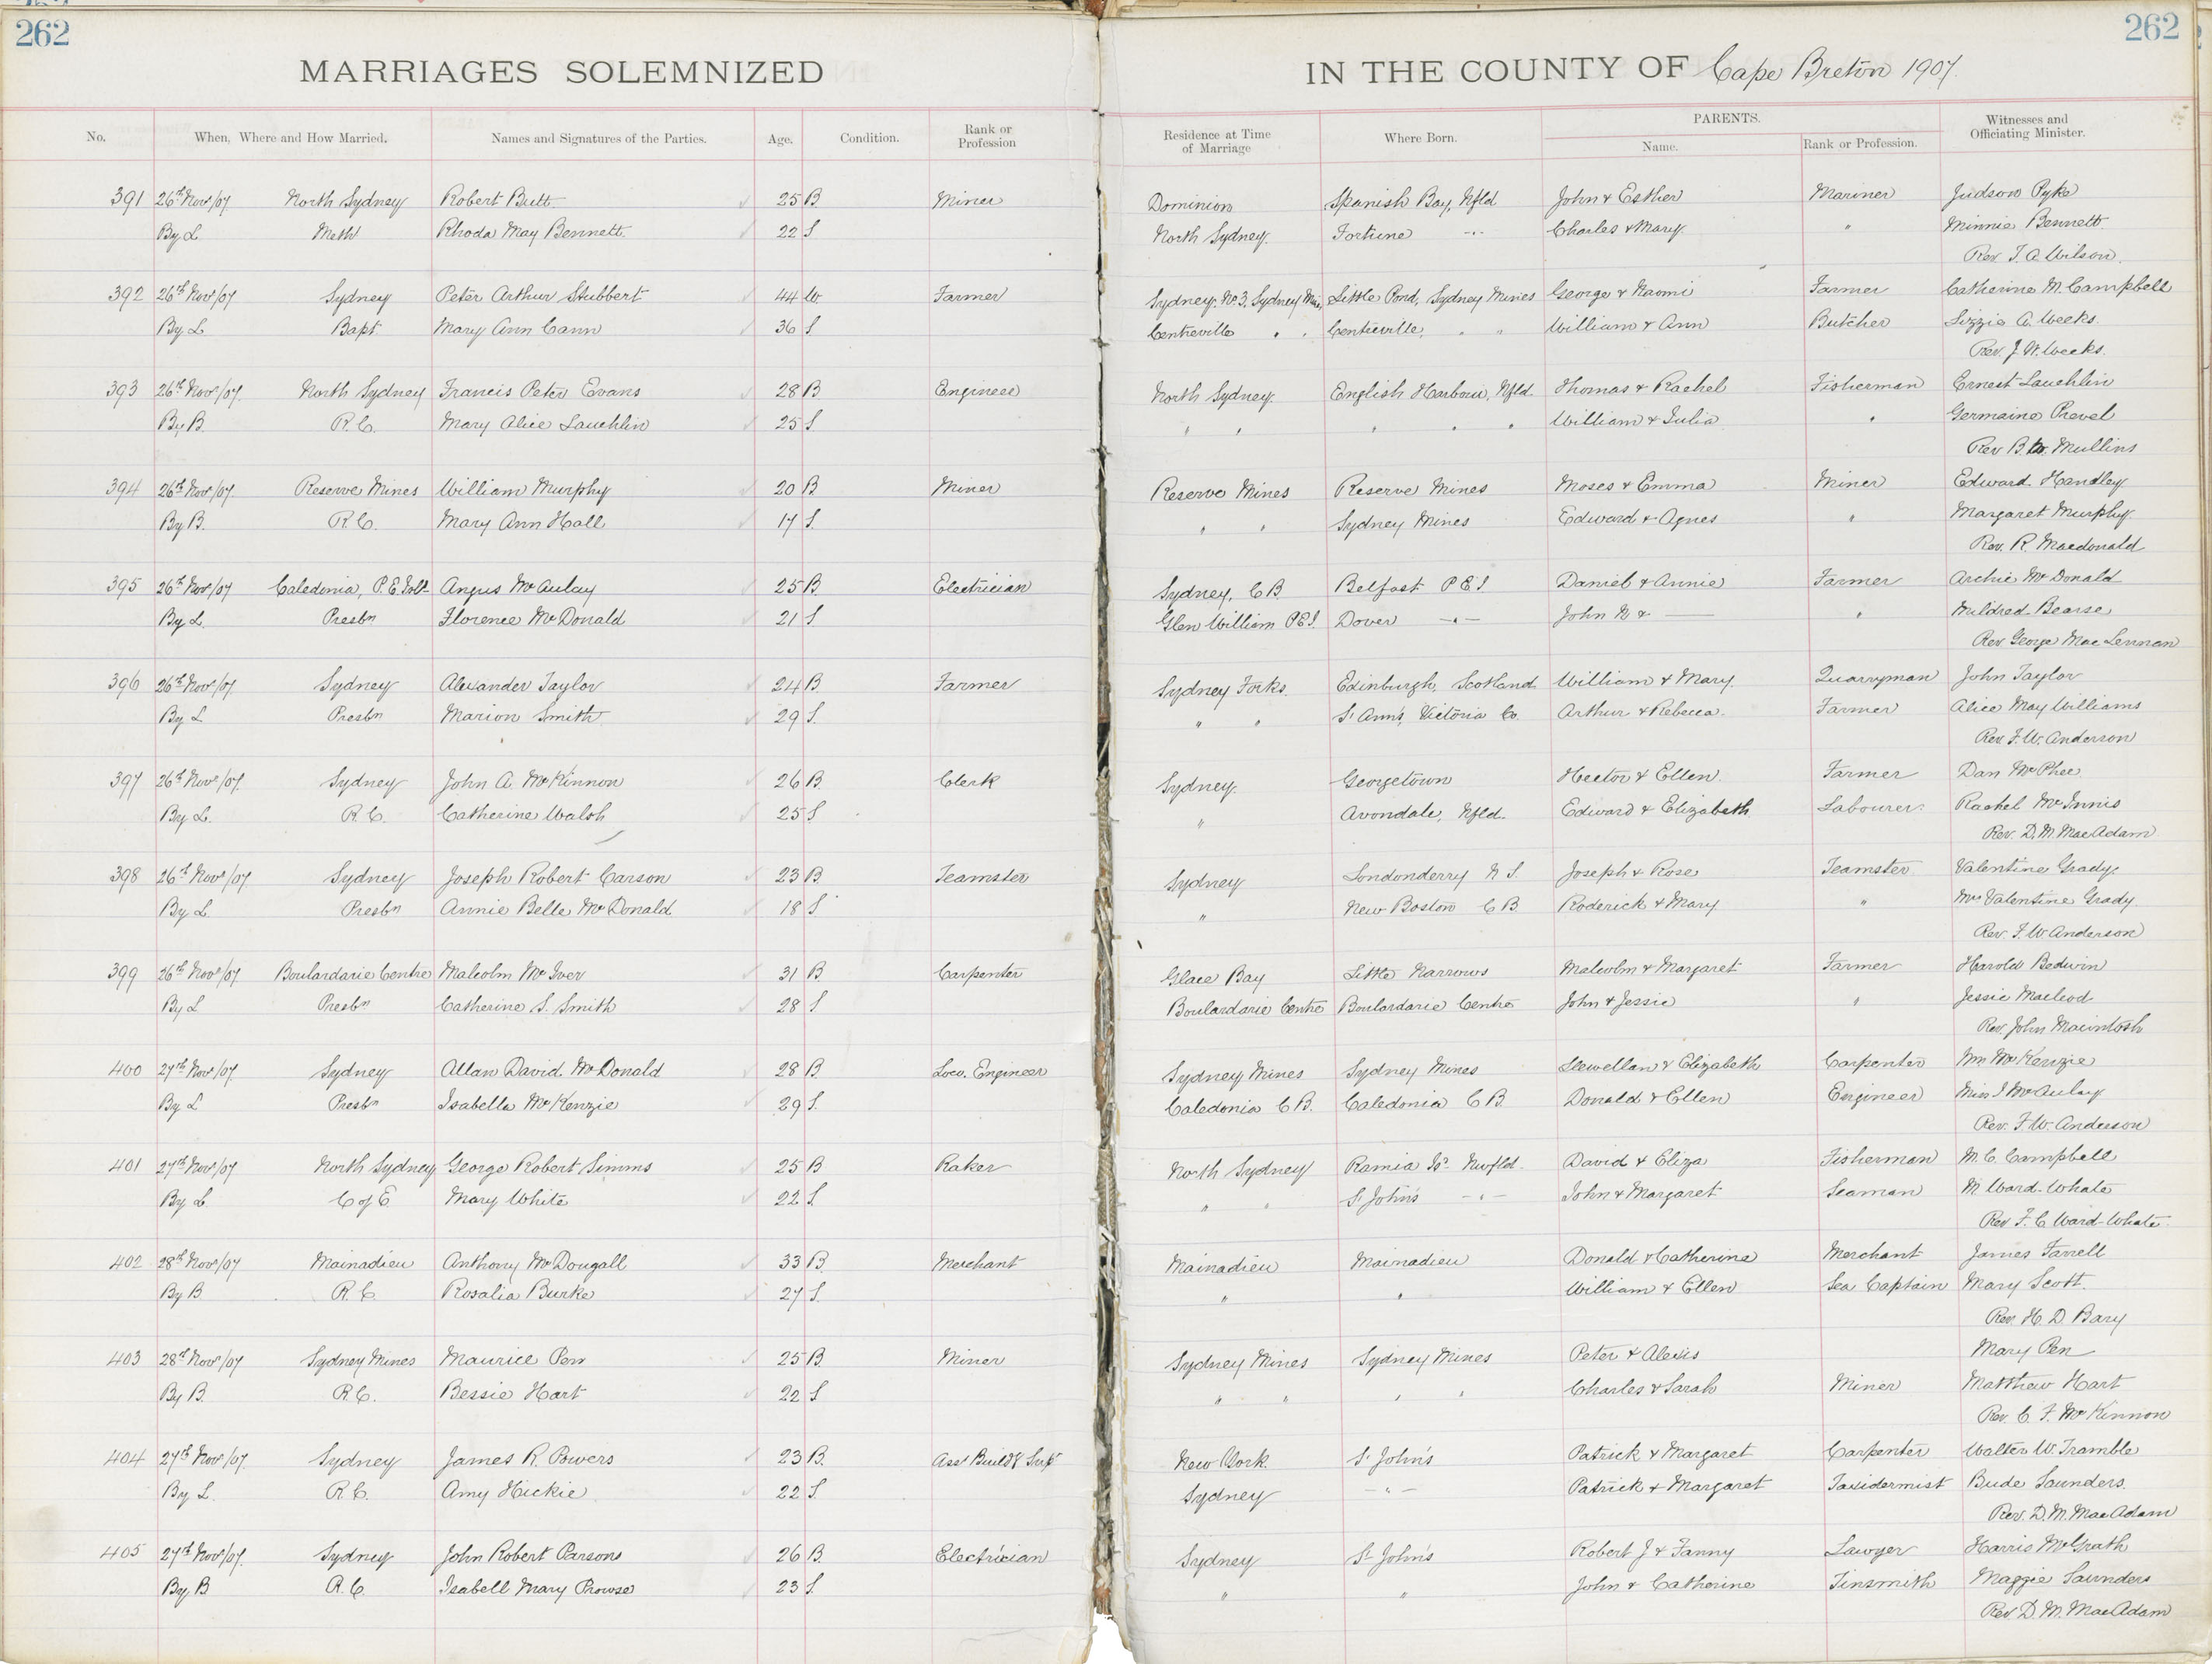 262 262
MARRIAGES SOLEMNIZED IN THE COUNTY OF Cape Breton 1907.
No. When, Where and How Married. Names and Signatures of the Parties. Age. Condition. Rank or Profession Residence at Time of Marriage Where Born. PARENTS. Name. Rank or Profession. Witnesses and Officiating Minister.
391 26th Nov/07. North Sydney Robert Butt 25 B Miner Dominion Spanish Bay, Nfld John & Esther Mariner Judson Pyke
By L. Meth Rhoda May Bennett. 22 S. North Sydney. Fortune -"- Charles & Mary. " Minnie Bennett.
Rev. T. A. Wilson.
392 26th Nov/07 Sydney Peter Arthur Stubbert 44 W. Farmer Sydney. No 3. Sydney Mines, Little Pond, Sydney Mines George & Naomi Farmer Catherine M. Campbell
By L Bapt Mary Ann Cann 36 S. Centreville " " Centreville, " " William & Ann Butcher Lizzie A. Weeks.
Rev. J. W. Weeks.
393 26th Nov/07. North Sydney Francis Peter Evans 28 B Engineer North Sydney. English Harbour, Nfld. Thomas & Rachel Fisherman Ernest Lauchlin
By B. R. C. Mary Alice Lauchlin 25 S. " " " " " William & Julia " Germaine Prevel
Rev B. Mullins
394 26th Nov/07. Reserve Mines William Murphy 20 B Miner Reserve Mines Reserve Mines Moses & Emma Miner Edward Handley
By B. R. C. Mary Ann Hall 17 S. " " Sydney Mines Edward & Agnes " Margaret Murphy.
Rev. R. Macdonald
395 26th Nov/07 Caledonia, P.E.Isld Angus McAulay 25 B. Electrician Sydney, C B. Belfast P E I Daniel & Annie Farmer Archie McDonald
By L. Presbn Florence McDonald 21 S Glen William P E I. Dover -"- John N & — " Mildred Bearse
Rev. George MacLennan
396 26th Nov/07. Sydney Alexander Taylor 24 B. Farmer Sydney Forks. Edinburgh, Scotland William & Mary. Quarryman John Taylor
By L Presbn Marion Smith 29 S. " " St Ann's, Victoria Co. Arthur & Rebecca. Farmer Alice May Williams
Rev. F. W. Anderson
397 26th Nov/07. Sydney John A. McKinnon 26 B. Clerk Sydney. Georgetown Hector & Ellen. Farmer Dan McPhee.
By L. R. C. Catherine Walsh 25 S " Avondale, Nfld. Edward & Elizabeth Labourer. Rachel McInnis
Rev. D. M. MacAdam
398 26th Nov/07 Sydney Joseph Robert Carson 23 B. Teamster Sydney Londonderry N S. Joseph & Rose Teamster Valentine Grady.
By L. Presbn Annie Belle McDonald 18 S " New Boston C B. Roderick & Mary " Mrs Valentine Grady
Rev. F. W Anderson
399 26th Nov/07. Boulardarie Centre Malcolm McIver 31 B. Carpenter Glace Bay Little Narrows Malcolm & Margaret Farmer Harold Bedwin
By L Presbn Catherine S. Smith 28 S Boulardarie Centre Boulardarie Centre John & Jessie " Jessie Macleod
Rev. John Macintosh
400 27th Nov/07. Sydney Allan David McDonald 28 B. Loco. Engineer Sydney Mines Sydney Mines Llewellan & Elizabeth Carpenter Wm McKenzie
By L Presbn Isabella McKenzie 29 S. Caledonia C B. Caledonia C B. Donald & Ellen Engineer Miss J McAulay
Rev. F. W. Anderson
401 27th Nov/07 North Sydney George Robert Simms 25 B Baker North Sydney Ramia Is. Newfld. David & Eliza Fisherman M. C. Campbell
By L. C of E. Mary White 22 S. " " St John's -"- John & Margaret Seaman M. Ward-Whate
Rev F. C Ward-Whate.
402 28th Nov/07 Mainadieu Anthony McDougall 33 B. Merchant Mainadieu Mainadieu Donald & Catherine Merchant James Farrell
By B. R. C. Rosalia Burke 27 S. " " William & Ellen Sea Captain Mary Scott.
Rev. H. D Bary
403 28th Nov/07 Sydney Mines Maurice Penn 25 B. Miner Sydney Mines Sydney Mines Peter & Alexis Mary Pen
By B. R. C. Bessie Hart 22 S " " " " Charles & Sarah Miner Matthew Hart
Rev. C. F. McKinnon
404 27th Nov/07. Sydney James R. Powers 23 B. Asst Buildg Supt New York. St John's Patrick & Margaret Carpenter Walter W. Tramble
By L. R. C. Amy Hickie 22 S. Sydney -"- Patrick & Margaret Taxidermist Bude Saunders.
Rev. D. M. MacAdam
405 27th Nov/07. Sydney John Robert Parsons 26 B. Electrician Sydney St John's Robert J & Fanny Lawyer Harris McGrath
By B R. C. Isabell Mary Prowse 23 S. " " John & Catherine Tinsmith Maggie Saunders
Rev D. M. MacAdam